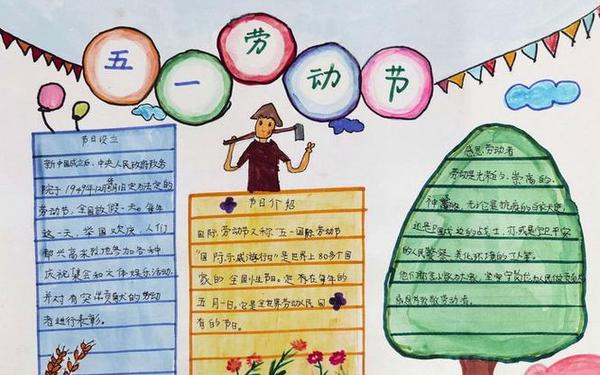 五一劳动节
节日设立
新中国成立后、中央人民政府政务
院于1949年12月 日定为法定的
劳动节,全国放假一天。每年
这一天,举国欢庆,人们
都兴高采烈地参加各种
庆祝集会和文体娱乐活动,
并对有突出贡献的劳动
者进行表彰。
节日介绍
国际劳动节又称"五一国际劳动节
"国际示威游行日"是世界上80多个国
家的全国性节日。定在每年的
五月一日。它是全世界劳动人民 
有的节日。
感恩劳动者
劳动是光荣与崇高的.
神 无论它是抗疫的白衣天使
还是 战士,亦或是它是平常
的人民警察、美化环境的工人等。
他们都 坚守岗位为人民做贡献